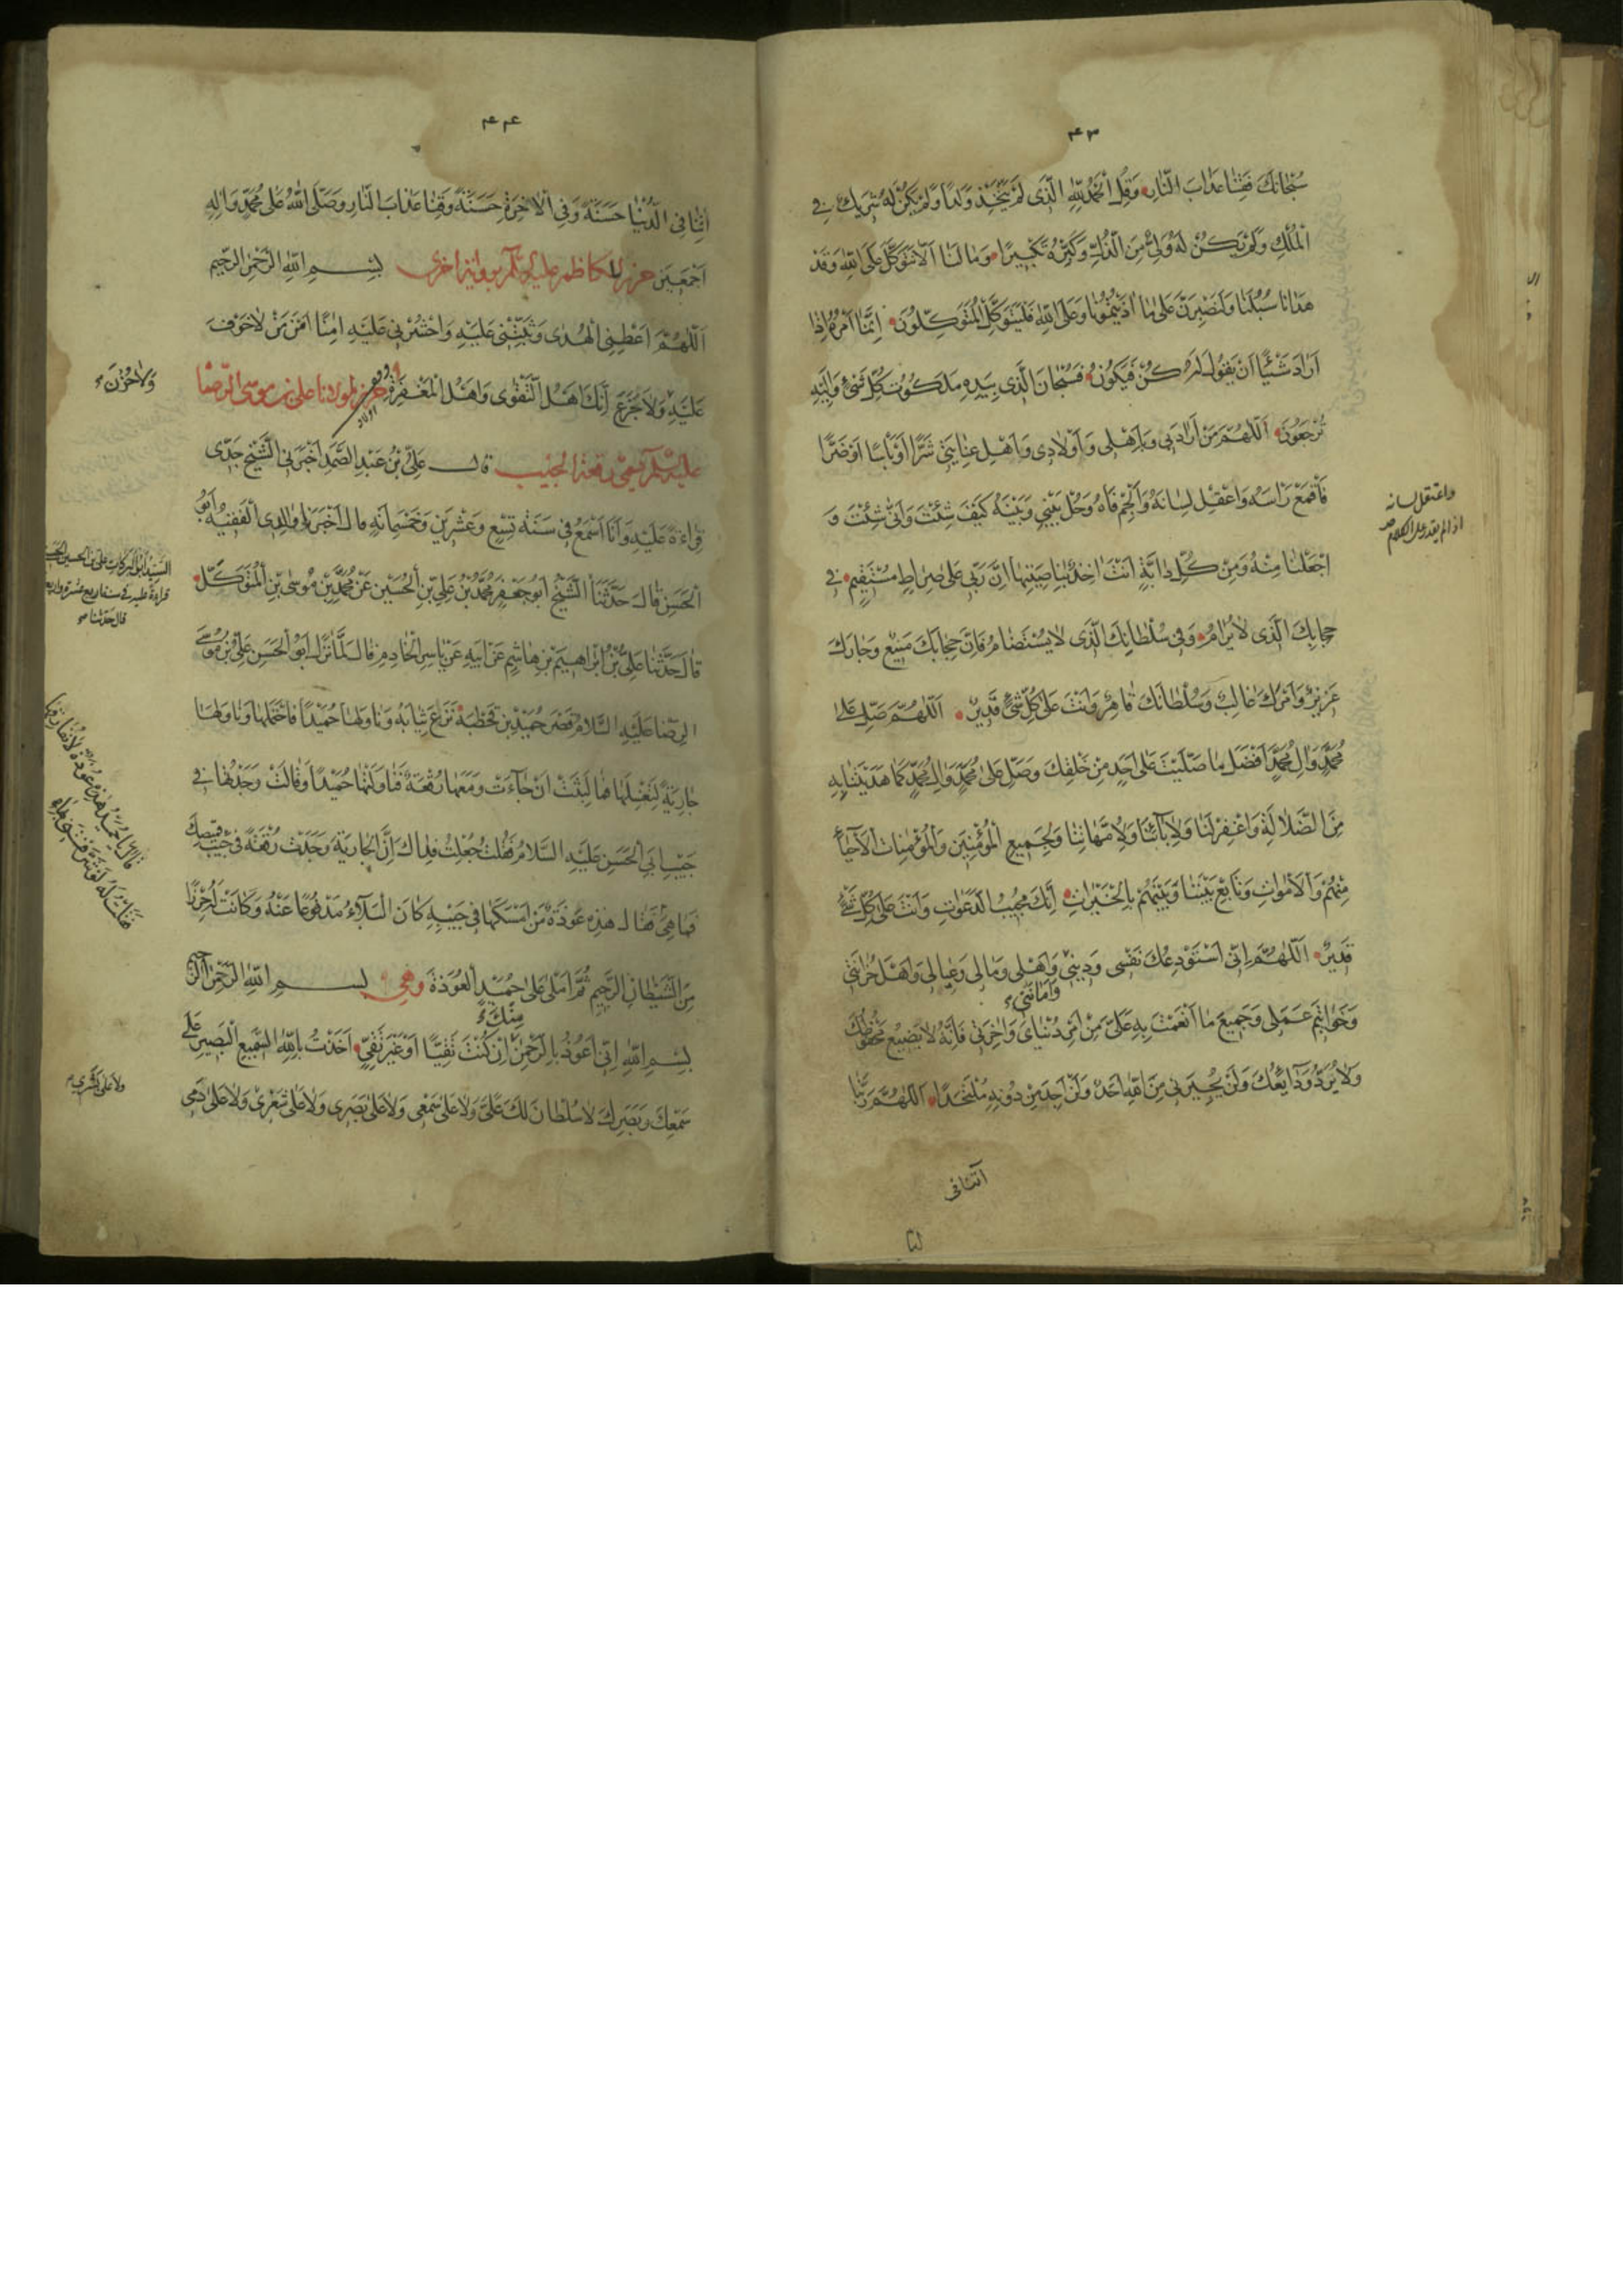 ۴۳
سُبْحَانَكَ فَقِنَا عَذَابَ النَّارِ وَقُلِ الْحَمْدُ لِلّٰهِ الَّذِي لَمْ يَتَّخِذْ وَلَدًا وَلَمْ يَكُنْ لَهُ شَرِيكٌ فِي
الْمُلْكِ وَلَمْ يَكُنْ لَهُ وَلِيٌّ مِنَ الذُّلِّ وَكَبِّرْهُ تَكْبِيرًا وَمَا لَنَا أَلَّا نَتَوَكَّلَ عَلَى اللّٰهِ وَقَدْ
هَدَانَا سُبُلَنَا وَلَنَصْبِرَنَّ عَلَى مَا آذَيْتُمُونَا وَعَلَى اللّٰهِ فَلْيَتَوَكَّلِ الْمُتَوَكِّلُونَ إِنَّمَا أَمْرُهُ إِذَا
أَرَادَ شَيْئًا أَنْ يَقُولَ لَهُ كُنْ فَيَكُونُ فَسُبْحَانَ الَّذِي بِيَدِهِ مَلَكُوتُ كُلِّ شَيْءٍ وَإِلَيْهِ
تُرْجَعُونَ اَللّٰهُمَّ مَنْ أَرَادَ بِي وَبِأَهْلِي وَأَوْلَادِي وَأَهْلِ عِنَايَتِي شَرًّا أَوْ بَأْسًا أَوْ ضَرًّا
فَاقْمَعْ رَأْسَهُ وَاعْقِلْ لِسَانَهُ وَأَلْجِمْ فَاهُ وَحُلْ بَيْنِي وَبَيْنَهُ كَيْفَ شِئْتَ وَأَنَّى شِئْتَ وَ
اجْعَلْنَا مِنْهُ وَمِنْ كُلِّ دَابَّةٍ أَنْتَ آخِذٌ بِنَاصِيَتِهَا إِنَّ رَبِّي عَلَى صِرَاطٍ مُسْتَقِيمٍ فِي
حِجَابِكَ الَّذِي لَا يُرَامُ وَفِي سُلْطَانِكَ الَّذِي لَا يُسْتَضَامُ فَإِنَّ حِجَابَكَ مَنِيعٌ وَجَارَكَ
عَزِيزٌ وَأَمْرَكَ غَالِبٌ وَسُلْطَانَكَ قَاهِرٌ وَأَنْتَ عَلَى كُلِّ شَيْءٍ قَدِيرٌ اَللّٰهُمَّ صَلِّ عَلَى
مُحَمَّدٍ وَآلِ مُحَمَّدٍ أَفْضَلَ مَا صَلَّيْتَ عَلَى أَحَدٍ مِنْ خَلْقِكَ وَصَلِّ عَلَى مُحَمَّدٍ وَآلِ مُحَمَّدٍ كَمَا هَدَيْتَنَا بِهِ
مِنَ الضَّلَالَةِ وَاغْفِرْ لَنَا وَلِآبَائِنَا وَلِأُمَّهَاتِنَا وَلِجَمِيعِ الْمُؤْمِنِينَ وَالْمُؤْمِنَاتِ الْأَحْيَاءِ
مِنْهُمْ وَالْأَمْوَاتِ وَتَابِعْ بَيْنَنَا وَبَيْنَهُمْ بِالْخَيْرَاتِ إِنَّكَ مُجِيبُ الدَّعَوَاتِ وَأَنْتَ عَلَى كُلِّ شَيْءٍ
قَدِيرٌ اَللّٰهُمَّ إِنِّي أَسْتَوْدِعُكَ نَفْسِي وَدِينِي وَأَهْلِي وَمَالِي وَعِيَالِي وَأَهْلَ حُزَانَتِي
وَأَمَانَتِي
وَخَوَاتِيمَ عَمَلِي وَجَمِيعَ مَا أَنْعَمْتَ بِهِ عَلَيَّ مِنْ أَمْرِ دُنْيَايَ وَآخِرَتِي فَإِنَّهُ لَا يَضِيعُ مَحْفُوظُكَ
وَلَا تُرَدُّ وَدَائِعُكَ وَلَنْ يُجِيرَنِي مِنَ اللّٰهِ أَحَدٌ وَلَنْ أَجِدَ مِنْ دُونِهِ مُلْتَحَدًا اَللّٰهُمَّ رَبَّنَا
آتنا في
واعتقل لسانه
اذا لم يقدر على الكلام
۴۴
آتِنَا فِي الدُّنْيَا حَسَنَةً وَفِي الْآخِرَةِ حَسَنَةً وَقِنَا عَذَابَ النَّارِ وَصَلَّى اللّٰهُ عَلَى مُحَمَّدٍ وَآلِهِ
أَجْمَعِينَ حرز للكاظم عليه السلام برواية اخرى بِسْمِ اللّٰهِ الرَّحْمٰنِ الرَّحِيمِ
اَللّٰهُمَّ أَعْطِنِي الْهُدَى وَثَبِّتْنِي عَلَيْهِ وَاحْشُرْنِي عَلَيْهِ آمِنًا أَمْنَ مَنْ لَا خَوْفَ
وَلَا حُزْنَ
عَلَيْهِ وَلَا جَزَعَ إِنَّكَ أَهْلُ التَّقْوَى وَأَهْلُ الْمَغْفِرَةِ حرز لمولانا علي بن موسى الرضا
عليه السلام يعني رقعة الجيب قَالَ عَلِيُّ بْنُ عَبْدِ الصَّمَدِ أَخْبَرَنِي الشَّيْخُ جَدِّي
قِرَاءَةً عَلَيْهِ وَأَنَا أَسْمَعُ فِي سَنَةِ تِسْعٍ وَعِشْرِينَ وَخَمْسِمِائَةٍ قَالَ أَخْبَرَنِي وَالِدِي الْفَقِيهُ أَبُو
الْحَسَنِ قَالَ حَدَّثَنَا الشَّيْخُ أَبُو جَعْفَرٍ مُحَمَّدُ بْنُ عَلِيِّ بْنِ الْحُسَيْنِ عَنْ مُحَمَّدِ بْنِ مُوسَى بْنِ الْمُتَوَكِّلِ
السيد ابو البركات علي بن الحسين
قراءة عليه في سنة اربع عشرة واربع
قال حدثنا
قَالَ حَدَّثَنَا عَلِيُّ بْنُ إِبْرَاهِيمَ بْنِ هَاشِمٍ عَنْ أَبِيهِ عَنْ يَاسِرٍ الْخَادِمِ قَالَ لَمَّا نَزَلَ أَبُو الْحَسَنِ عَلِيُّ بْنُ مُوسَى
الرِّضَا عَلَيْهِ السَّلَامُ قَصْرَ حُمَيْدِ بْنِ قَحْطَبَةَ نَزَعَ ثِيَابَهُ وَنَاوَلَهَا حُمَيْدًا فَاحْتَمَلَهَا وَنَاوَلَهَا
جَارِيَةً لِتَغْسِلَهَا فَمَا لَبِثَتْ أَنْ جَاءَتْ وَمَعَهَا رُقْعَةٌ فَنَاوَلَتْهَا حُمَيْدًا وَقَالَتْ وَجَدْتُهَا فِي
جَيْبِ أَبِي الْحَسَنِ عَلَيْهِ السَّلَامُ فَقُلْتُ جُعِلْتُ فِدَاكَ إِنَّ الْجَارِيَةَ وَجَدَتْ رُقْعَةً فِي جَيْبِ قَمِيصِكَ
فَمَا هِيَ فَقَالَ هٰذِهِ عُوذَةٌ مَنْ أَمْسَكَهَا فِي جَيْبِهِ كَانَ الْبَلَاءُ مَدْفُوعًا عَنْهُ وَكَانَتْ لَهُ حِرْزًا
مِنَ الشَّيْطَانِ الرَّجِيمِ ثُمَّ أَمْلَى عَلَى حُمَيْدٍ الْعُوذَةَ وهي بِسْمِ اللّٰهِ الرَّحْمٰنِ الرَّحِيمِ
مِنْكَ
بِسْمِ اللّٰهِ إِنِّي أَعُوذُ بِالرَّحْمٰنِ إِنْ كُنْتَ تَقِيًّا أَوْ غَيْرَ تَقِيٍّ أَخَذْتُ بِاللّٰهِ السَّمِيعِ الْبَصِيرِ عَلَى
سَمْعِكَ وَبَصَرِكَ لَا سُلْطَانَ لَكَ عَلَيَّ وَلَا عَلَى سَمْعِي وَلَا عَلَى بَصَرِي وَلَا عَلَى شَعْرِي وَلَا عَلَى دَمِي
ولا على بشري
قال يا حميد هذه عوذة لا نفارقها
فقلت له لو شرفتني بها